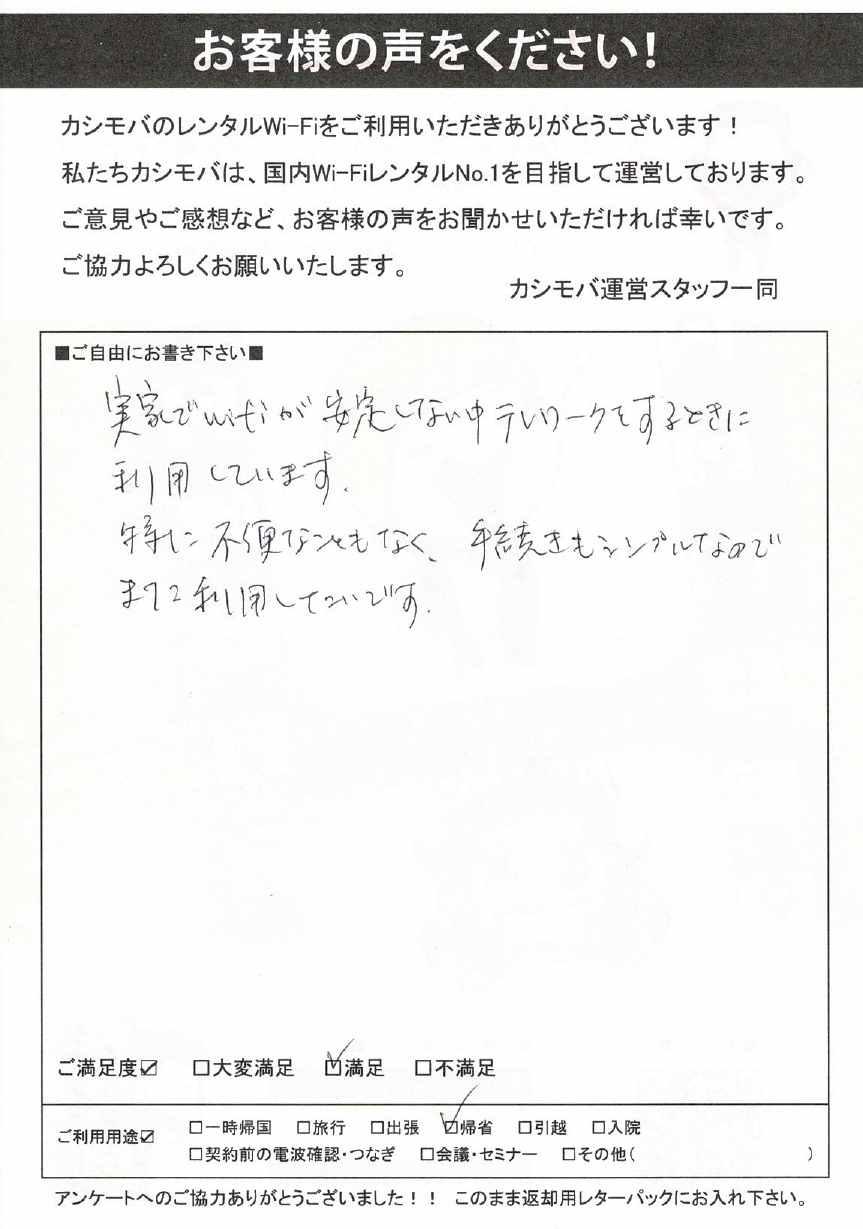 お客様の声をください!
カシモバのレンタルWi-Fiをご利用いただきありがとうございます!
私たちカシモバは、国内Wi-FiレンタルNo.1を目指して運営しております。
ご意見やご感想など、お客様の声をお聞かせいただければ幸いです。
ご協力よろしくお願いいたします。
カシモバ運営スタッフ一同
■ご自由にお書き下さい■
実家でwifiが安定しない中テレワークをするときに
利用しています.
特に不便なこともなく、手続きもシンプルなので
また利用したいです.
ご満足度☑ □大変満足 ☑満足 □不満足
ご利用用途☑ □一時帰国 □旅行 □出張 ☑帰省 □引越 □入院
□契約前の電波確認・つなぎ □会議・セミナー □その他( )
アンケートへのご協力ありがとうございました!! このまま返却用レターパックにお入れ下さい。